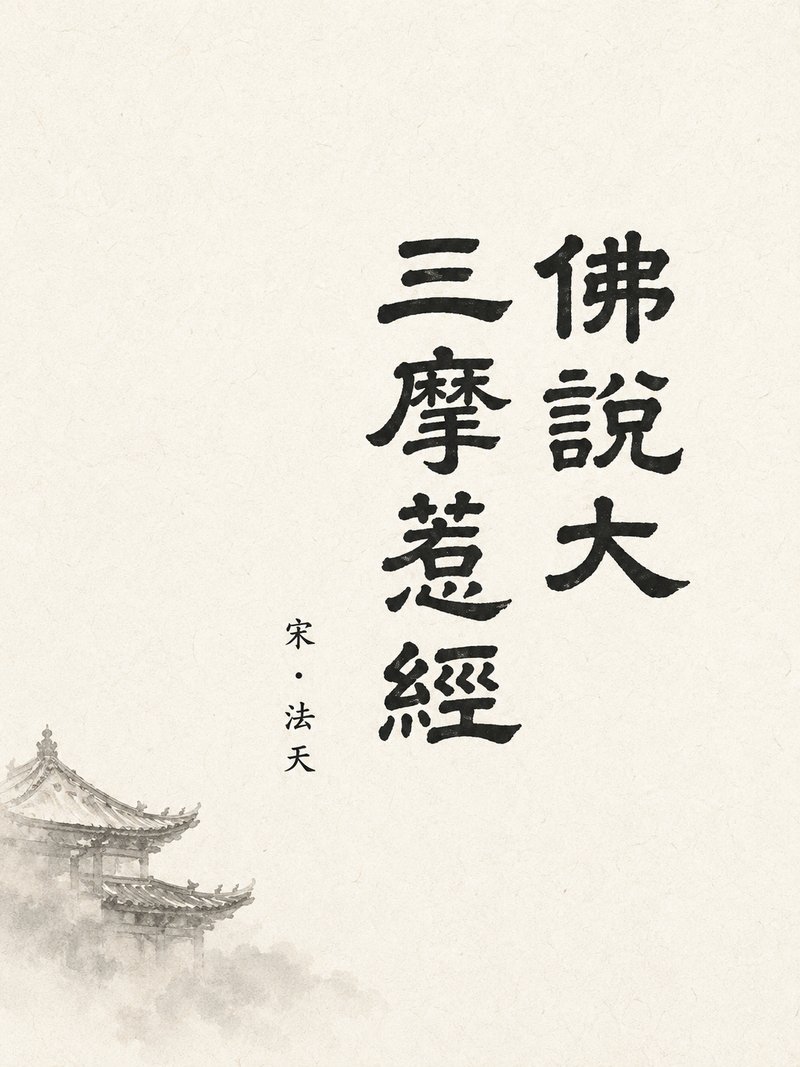 佛說大
三摩惹經
宋·法天